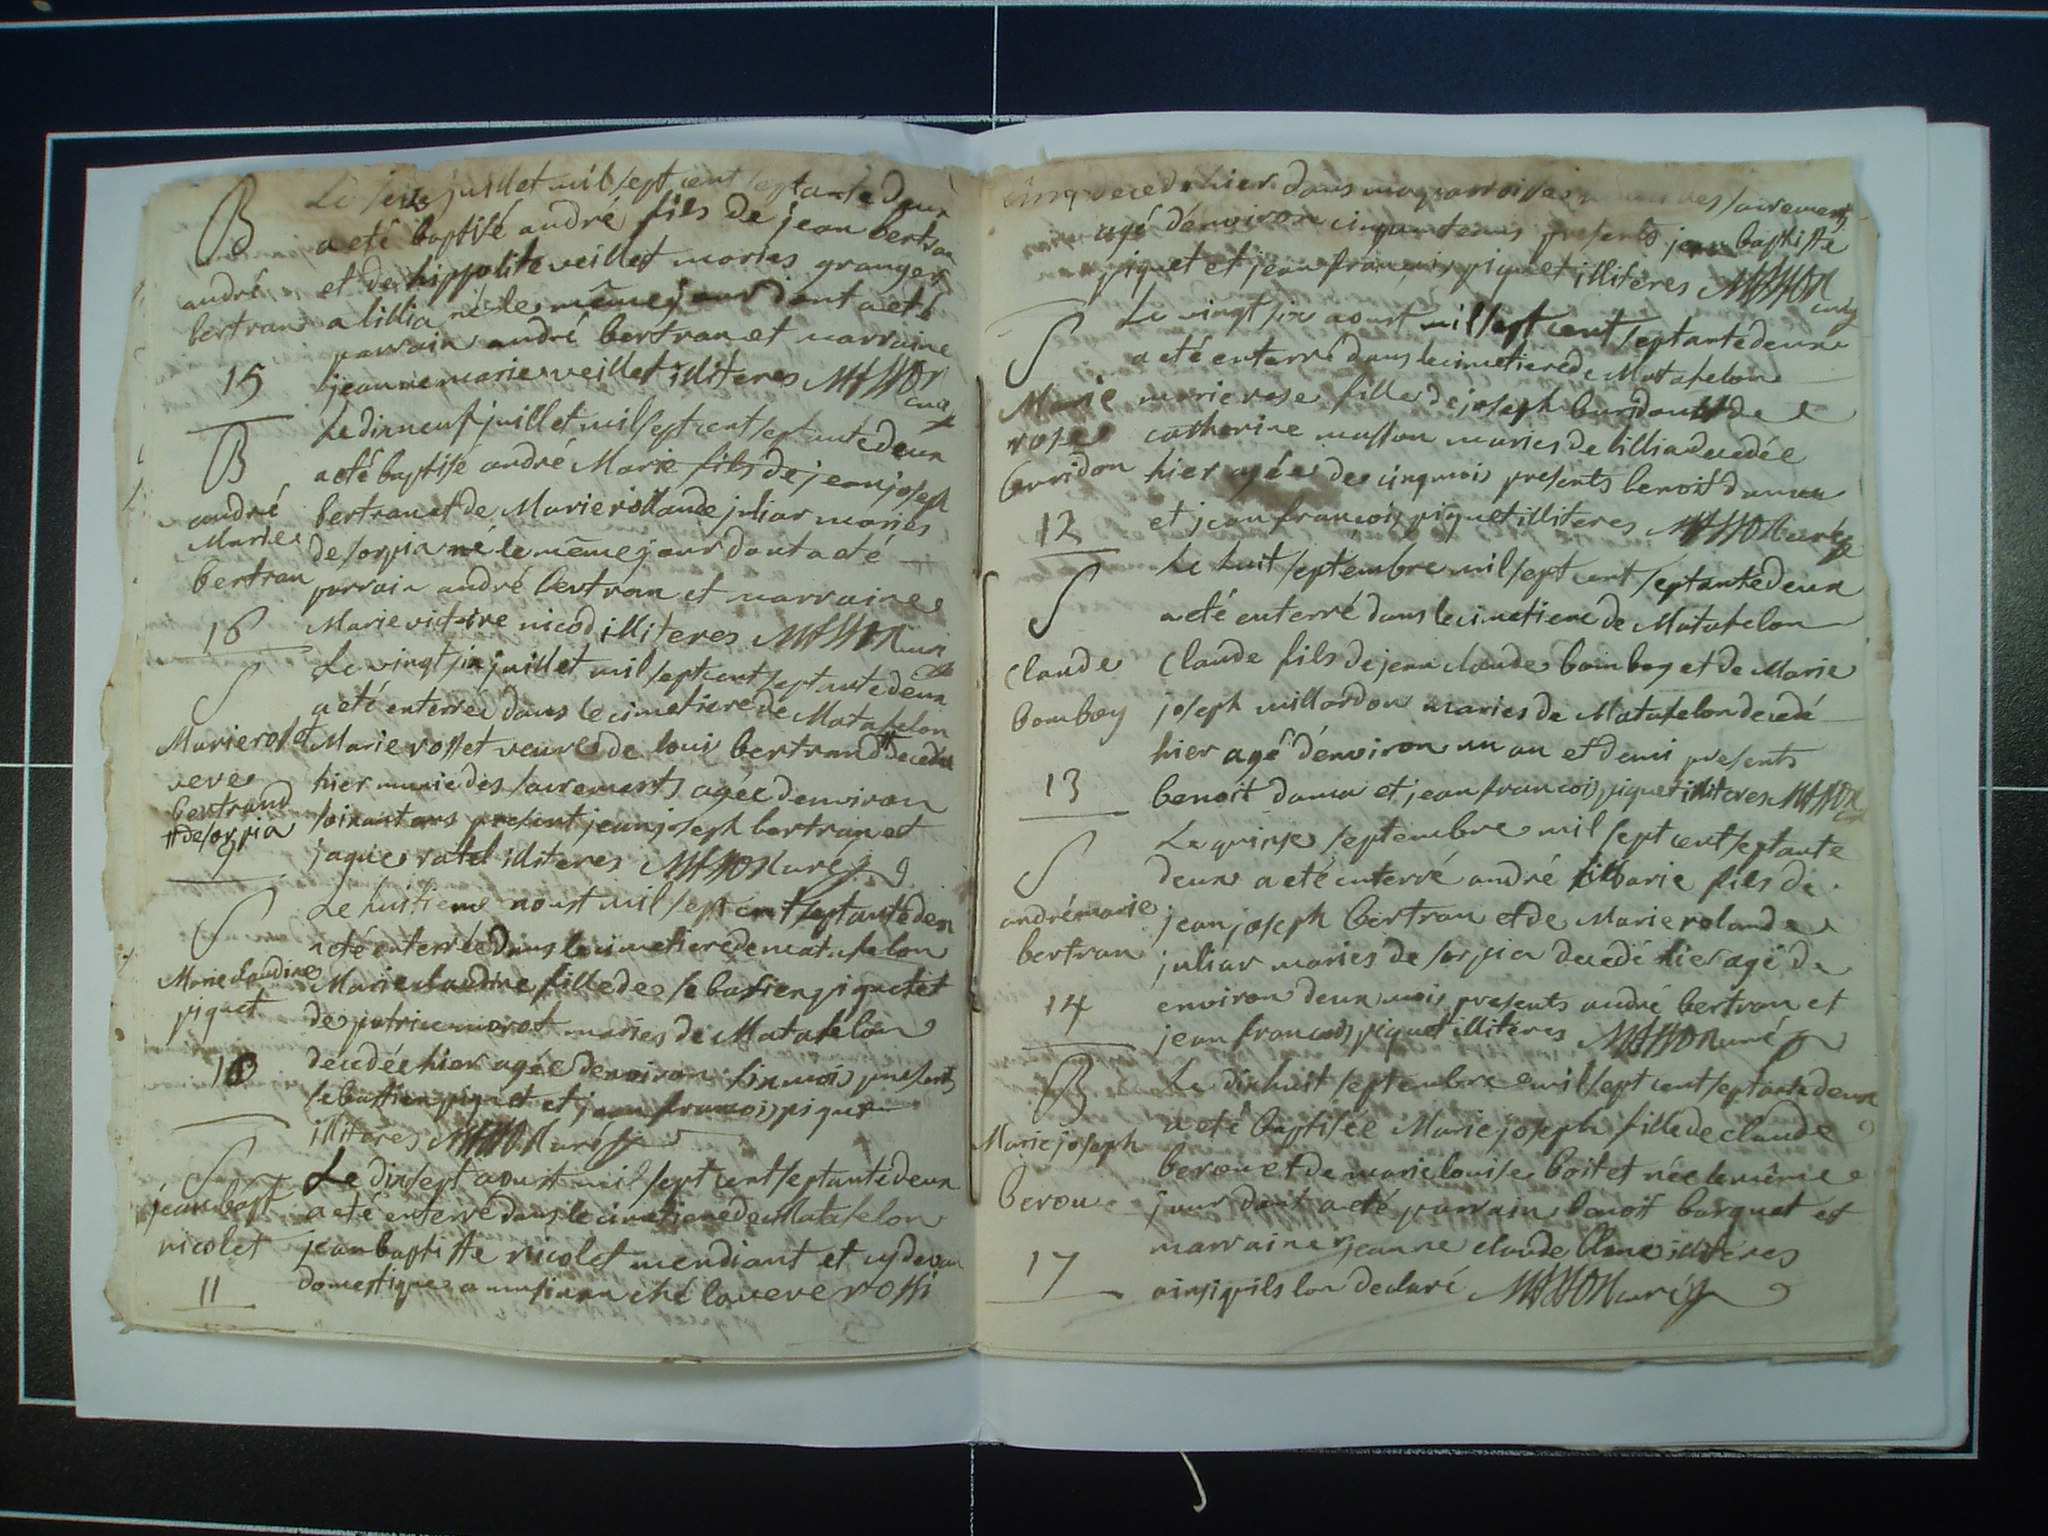 B
andré
bertran
15
Le seize juillet mil sept cent septante deux
a eté baptisé andré fils de jean bertran
et de hippolite veillet maries grangers
a lillia né le même jour dont a eté
parrain andré bertran et marraine
jeanne marie veillet illiteres MASSON
curé
B
andré
Marie
bertran
16
Le dixneuf juillet mil sept cent septante deux
a eté baptisé andré Marie fils de jean joseph
bertran et de Marie rollande juliar maries
de sorpia né le même jour dont a eté
parrain andré bertran et marraine
Marie victoire nicod illiteres MASSON curé
S
Marie rosset
veve
bertrand
# de sorpia
9
Le vingt six juillet mil sept cent septante deux
a eté enterrée dans le cimetiere de Matafelon
Marie rosset veuve de loui bertrand # decedée
hier munie des sacrements agée denviron
soixant ans present jean joseph bertran et
jaque ratel illiteres MASSON curé
S
Marie claudine
piquet
10
Le huitieme aoust mil sept cent septante deux
a eté enterrée dans le cimetiere de matafelon
Marie claudine fille de sebastien piquet et
de patrice moret maries de Matafelon
décedée hier agée denviron six mois presents
sebastien piquet et jean francois piquet
illiteres MASSON curé
S
jean bapt
nicolet
11
Le dixsept aoust mil sept cent septante deux
a eté enterré dans le cimetiere de Matafelon
jean baptiste nicolet mendiant et cydevan
domestique a ché la veve rossi
cinq decedé hier dans ma parroisse des sacrements
agé dénviron cinquante ans presents jean baptiste
piquet et jean francois piquet illiteres MASSON
curé
S
Marie
rose
burridon
12
Le vingt six aoust mil sept cent septante deux
a eté enterré dans le cimetiere de Matafelon
marie rose fille de joseph et de
catherine masson maries de lillia decedée
hier agée de cinq mois presents benoit damer
et jean francois piquet illiteres MASSON curé
S
Claude
bomboy
13
Le huit septembre mil sept cent septante deux
a eté enterré dans le cimetiere de Matafelon
Claude fils de jean claude bomboy et de Marie
joseph millardon maries de Matafelon decedé
hier agé d'environ un an et demi presents
benoit damer et jean francois piquet illiteres MASSON
curé
S
andré marie
bertran
14
Le quinse septembre mil sept cent septante
deux a eté enterré andré Marie fils de
jean joseph bertran et de Marie rolande
juliar mariés de sorpia decedé hier agé de
environ deux mois presents andré bertran et
jean francois piquet illiteres MASSON curé
B
Marie joseph
berou
17
Le dixhuit septembre mil sept cent septante deux
a eté baptisée Marie joseph fille de claude
berou et de marie louise boitet née le même
jour dont a eté parrain benoit barquet et
marraine jeanne claude illiteres
ainsi quils lon declaré MASSON curé